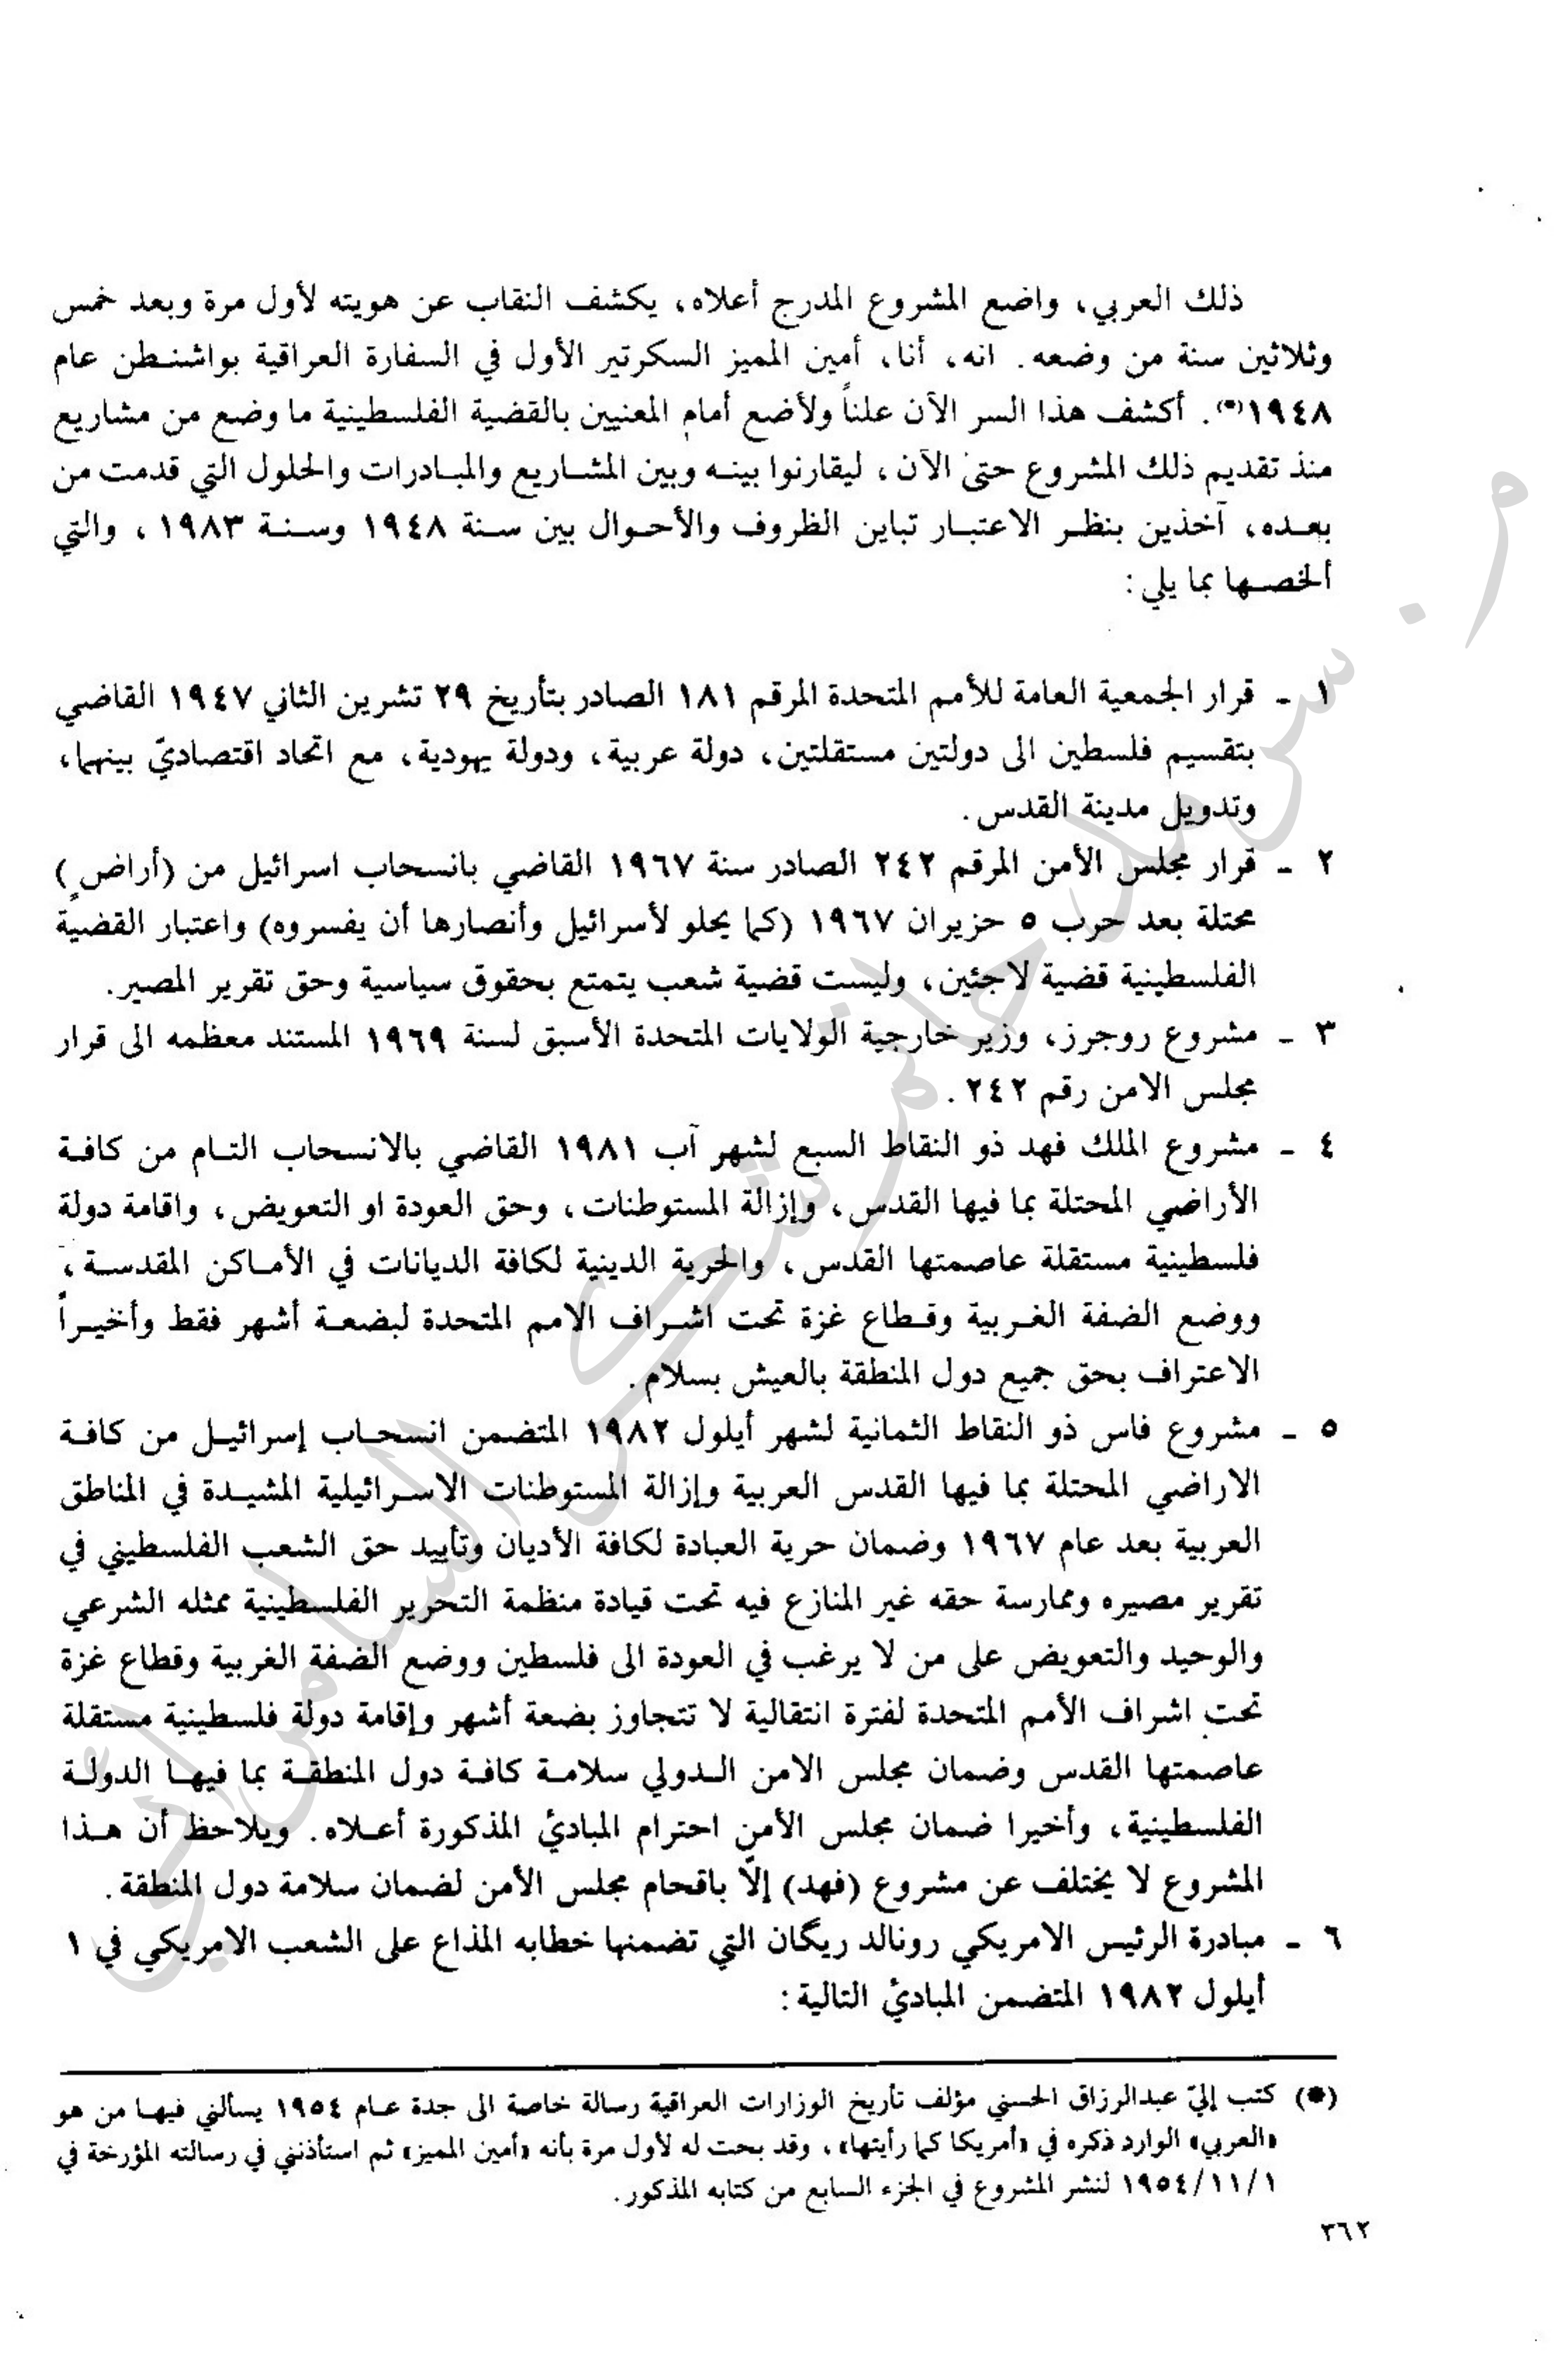 ذلك العربي، واضع المشروع المدرج أعلاه، يكشف النقاب عن هويته لأول مرة وبعد خمس
وثلاثين سنة من وضعه. انه، أنا، أمين المميز السكرتير الأول في السفارة العراقية بواشنطن عام
١٩٤٨(*). أكشف هذا السر الآن علناً ولأضع أمام المعنيين بالقضية الفلسطينية ما وضع من مشاريع
منذ تقديم ذلك المشروع حتى الآن، ليقارنوا بينه وبين المشاريع والمبادرات والحلول التي قدمت من
بعده، آخذين بنظر الاعتبار تباين الظروف والأحوال بين سنة ١٩٤٨ وسنة ١٩٨٣، والتي
ألخصها بما يلي:
١ - قرار الجمعية العامة للأمم المتحدة المرقم ١٨١ الصادر بتأريخ ٢٩ تشرين الثاني ١٩٤٧ القاضي
بتقسيم فلسطين الى دولتين مستقلتين، دولة عربية، ودولة يهودية، مع اتحاد اقتصاديّ بينهما،
وتدويل مدينة القدس.
٢ - قرار مجلس الأمن المرقم ٢٤٢ الصادر سنة ١٩٦٧ القاضي بانسحاب اسرائيل من (أراضٍ)
محتلة بعد حرب ٥ حزيران ١٩٦٧ (كما يحلو لأسرائيل وأنصارها أن يفسروه) واعتبار القضية
الفلسطينية قضية لاجئين، وليست قضية شعب يتمتع بحقوق سياسية وحق تقرير المصير.
٣ - مشروع روجرز، وزير خارجية الولايات المتحدة الأسبق لسنة ١٩٦٩ المستند معظمه الى قرار
مجلس الامن رقم ٢٤٢.
٤ - مشروع الملك فهد ذو النقاط السبع لشهر آب ١٩٨١ القاضي بالانسحاب التام من كافة
الأراضي المحتلة بما فيها القدس، وإزالة المستوطنات، وحق العودة او التعويض، واقامة دولة
فلسطينية مستقلة عاصمتها القدس، والحرية الدينية لكافة الديانات في الأماكن المقدسة،
ووضع الضفة الغربية وقطاع غزة تحت اشراف الامم المتحدة لبضعة أشهر فقط وأخيراً
الاعتراف بحق جميع دول المنطقة بالعيش بسلام.
٥ - مشروع فاس ذو النقاط الثمانية لشهر أيلول ١٩٨٢ المتضمن انسحاب إسرائيل من كافة
الاراضي المحتلة بما فيها القدس العربية وإزالة المستوطنات الاسرائيلية المشيدة في المناطق
العربية بعد عام ١٩٦٧ وضمان حرية العبادة لكافة الأديان وتأييد حق الشعب الفلسطيني في
تقرير مصيره وممارسة حقه غير المنازع فيه تحت قيادة منظمة التحرير الفلسطينية ممثله الشرعي
والوحيد والتعويض على من لا يرغب في العودة الى فلسطين ووضع الضفة الغربية وقطاع غزة
تحت اشراف الأمم المتحدة لفترة انتقالية لا تتجاوز بضعة أشهر وإقامة دولة فلسطينية مستقلة
عاصمتها القدس وضمان مجلس الامن الدولي سلامة كافة دول المنطقة بما فيها الدولة
الفلسطينية، وأخيرا ضمان مجلس الأمن احترام المبادئ المذكورة أعلاه. ويلاحظ أن هذا
المشروع لا يختلف عن مشروع (فهد) إلّا باقحام مجلس الأمن لضمان سلامة دول المنطقة.
٦ - مبادرة الرئيس الامريكي رونالد ريگان التي تضمنها خطابه المذاع على الشعب الامريكي في ١
أيلول ١٩٨٢ المتضمن المبادئ التالية:
(*) كتب إليّ عبدالرزاق الحسني مؤلف تأريخ الوزارات العراقية رسالة خاصة الى جدة عام ١٩٥٤ يسألني فيها من هو
«العربي» الوارد ذكره في «أمريكا كما رأيتها»، وقد بحت له لأول مرة بأنه «أمين المميز» ثم استأذنني في رسالته المؤرخة في
١٩٥٤/١١/١ لنشر المشروع في الجزء السابع من كتابه المذكور.
٣٦٢
م. سرمد حاتم شكر السامرائي